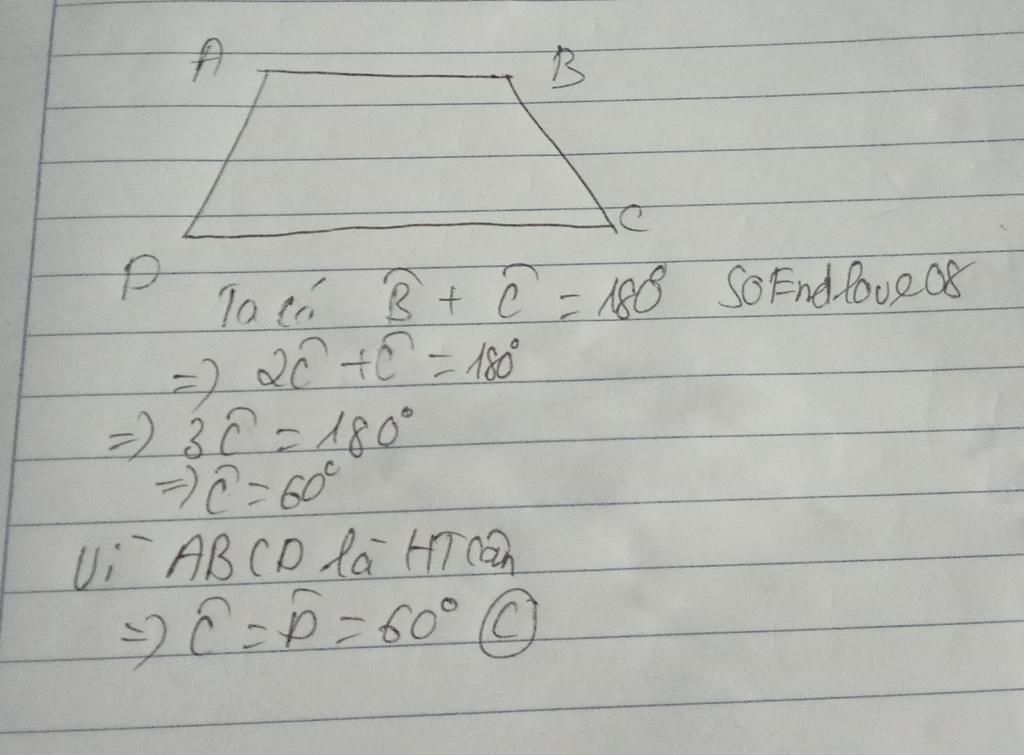 A B
C
D
Ta có B̂ + Ĉ = 180° SOEndlove08
=) 2Ĉ + Ĉ = 180°
=) 3Ĉ = 180°
=) Ĉ = 60°
Vì ABCD là HT cân
=) Ĉ = D̂ = 60° Ⓒ